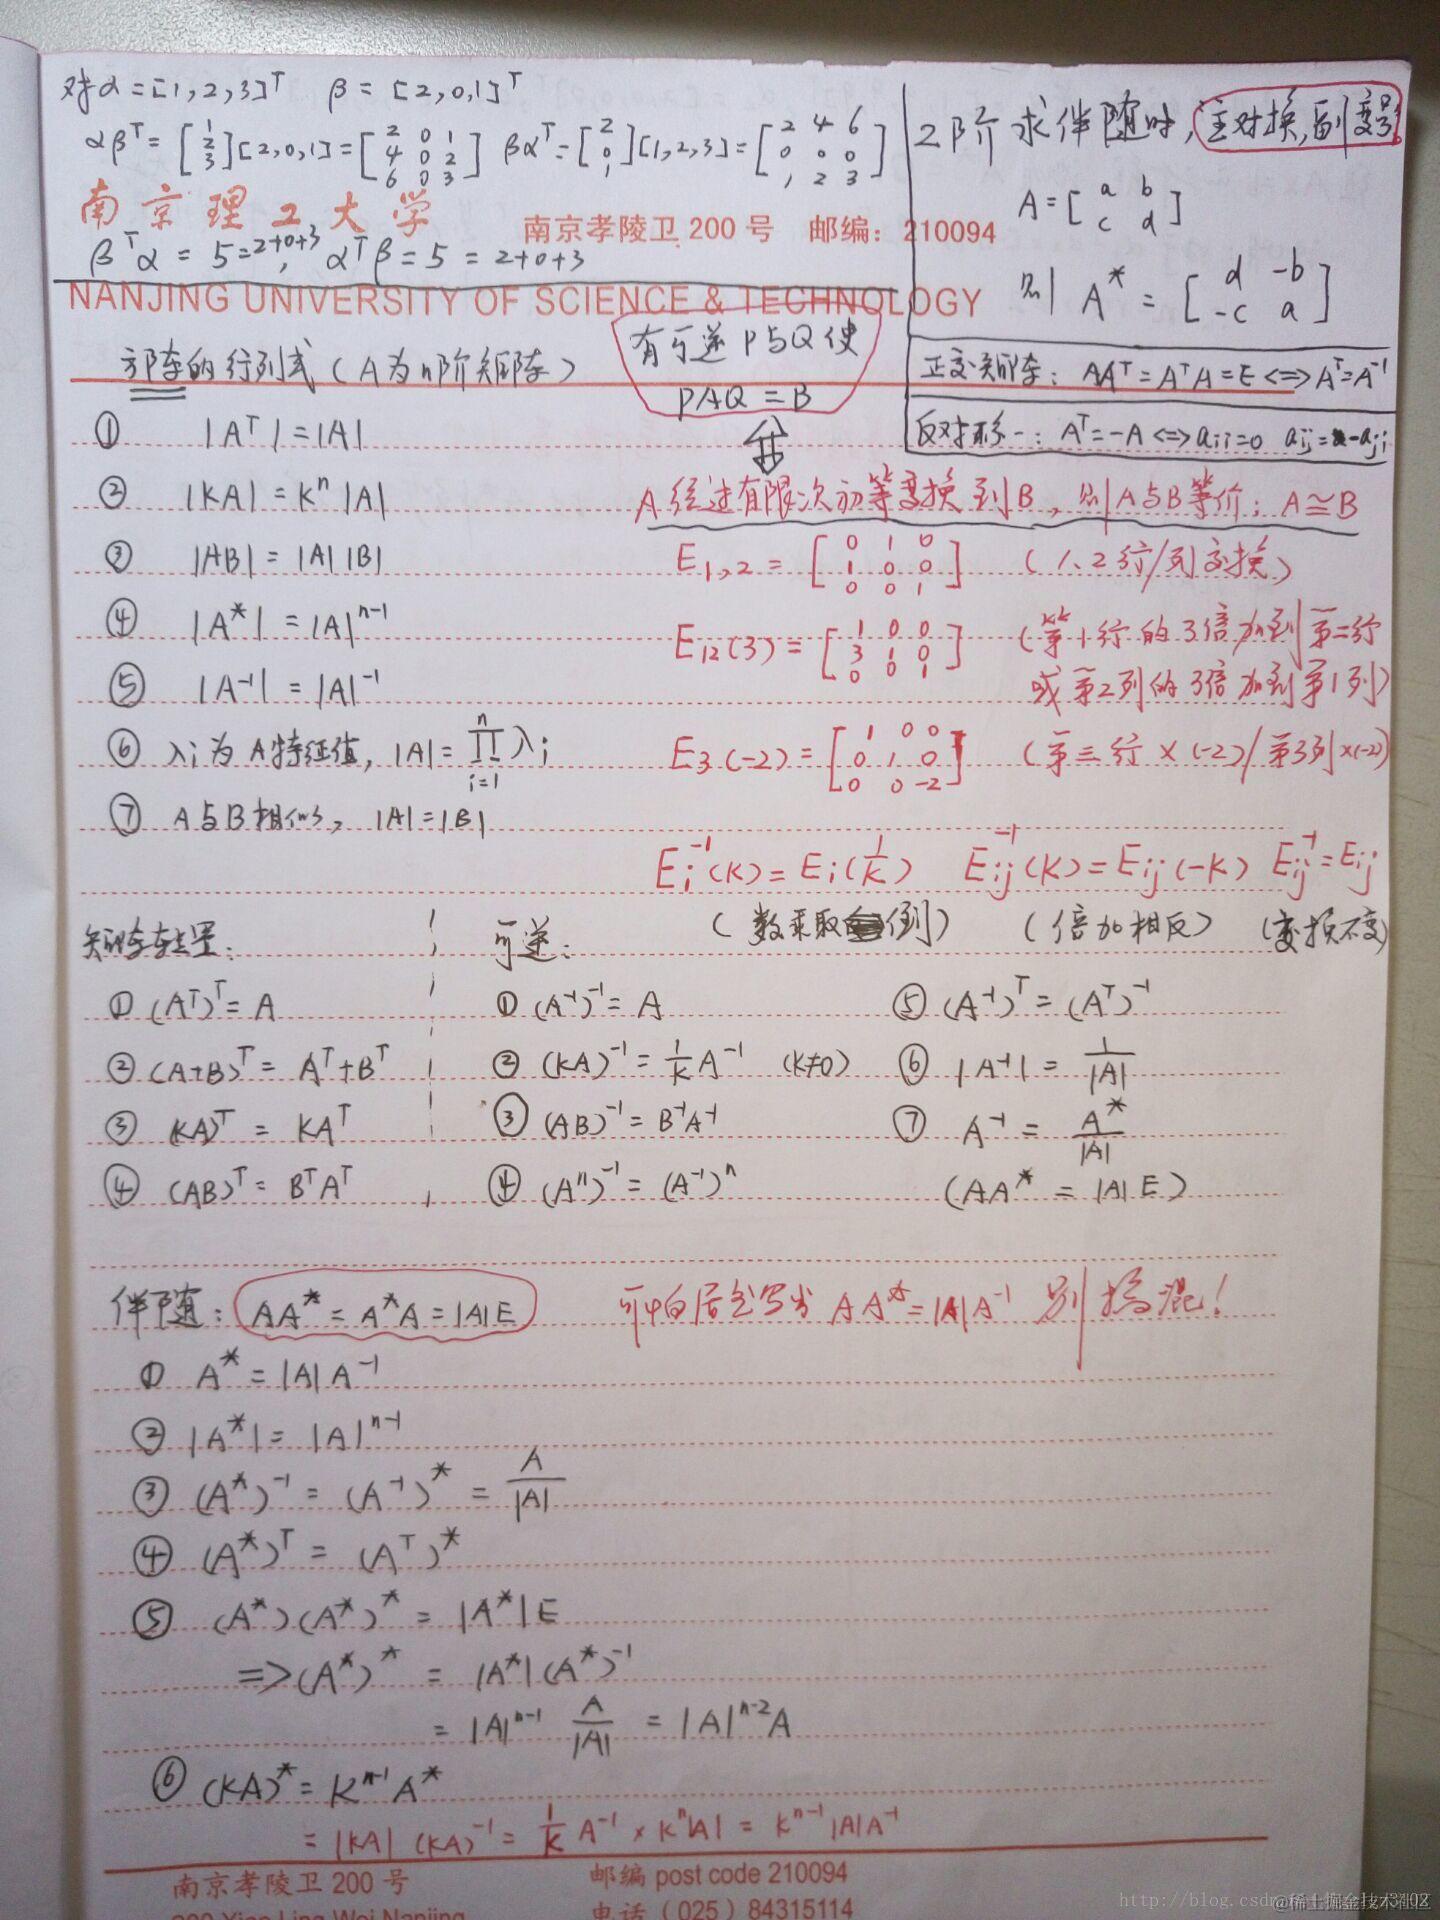 对α=[1,2,3]ᵀ β=[2,0,1]ᵀ
αβᵀ=[1 2 3][2,0,1]=[2 0 1; 4 0 2; 6 0 3] βαᵀ=[2 0 1][1,2,3]=[2 4 6; 0 0 0; 1 2 3]
南京理工大学
南京孝陵卫 200 号 邮编：210094
βᵀα=5=2+0+3, αᵀβ=5=2+0+3
NANJING UNIVERSITY OF SCIENCE & TECHNOLOGY
2阶求伴随时，主对换，副变号
A=[a b; c d]
则 A*=[d -b; -c a]
正交矩阵：AAᵀ=AᵀA=E<=>Aᵀ=A⁻¹
反对称~：Aᵀ=-A<=>aii=0 aij=-aji
方阵的行列式(A为n阶矩阵)
① |Aᵀ|=|A|
② |KA|=Kⁿ|A|
③ |AB|=|A||B|
④ |A*|=|A|ⁿ⁻¹
⑤ |A⁻¹|=|A|⁻¹
⑥ λi为A特征值，|A|=∏(i=1→n)λi
⑦ A与B相似，|A|=|B|
有可逆P与Q使
PAQ=B
⇕
A经过有限次初等变换到B，则A与B等价：A≅B
E1,2=[0 1 0; 1 0 0; 0 0 1] (1、2行/列交换)
E12(3)=[1 0 0; 3 1 0; 0 0 1] (第1行的3倍加到第二行
或第2列的3倍加到第1列)
E3(-2)=[1 0 0; 0 1 0; 0 0 -2] (第三行×(-2)/第3列×(-2))
Ei⁻¹(K)=Ei(1/K) Eij⁻¹(K)=Eij(-K) Eij⁻¹=Eij
(数乘取倒) (倍加相反) (变换不变)
矩阵转置：
① (Aᵀ)ᵀ=A
② (A+B)ᵀ=Aᵀ+Bᵀ
③ (KA)ᵀ=KAᵀ
④ (AB)ᵀ=BᵀAᵀ
可逆：
① (A⁻¹)⁻¹=A
② (KA)⁻¹=1/K A⁻¹ (K≠0)
③ (AB)⁻¹=B⁻¹A⁻¹
④ (Aⁿ)⁻¹=(A⁻¹)ⁿ
⑤ (A⁻¹)ᵀ=(Aᵀ)⁻¹
⑥ |A⁻¹|=1/|A|
⑦ A⁻¹=A*/|A|
(AA*=|A|E)
伴随：AA*=A*A=|A|E
写出 AA*=|A|A⁻¹ 别搞混！
① A*=|A|A⁻¹
② |A*|=|A|ⁿ⁻¹
③ (A*)⁻¹=(A⁻¹)*=A/|A|
④ (A*)ᵀ=(Aᵀ)*
⑤ (A*)(A*)*=|A*|E
=>(A*)*=|A*|(A*)⁻¹
=|A|ⁿ⁻¹ A/|A|=|A|ⁿ⁻²A
⑥ (KA)*=Kⁿ⁻¹A*
=|KA|(KA)⁻¹=1/K A⁻¹×Kⁿ|A|=Kⁿ⁻¹|A|A⁻¹
南京孝陵卫 200 号
邮编 post code 210094
200 Xiao Ling Wei Nanjing
电话（025）84315114
@稀土掘金技术社区